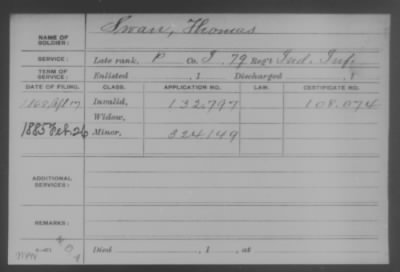 NAME OF SOLDIER: Swan, Thomas
SERVICE: Late rank, P Co. I, 79 Reg't Ind. Inf.
TERM OF SERVICE: Enlisted , 1 Discharged , 1
DATE OF FILING. CLASS. APPLICATION NO. LAW. CERTIFICATE NO.
1868 Apl 17 Invalid, 132.797 108.074
Widow,
1885 Feb. 26 Minor, 324149
ADDITIONAL SERVICES:
REMARKS:
Died , 1 , at